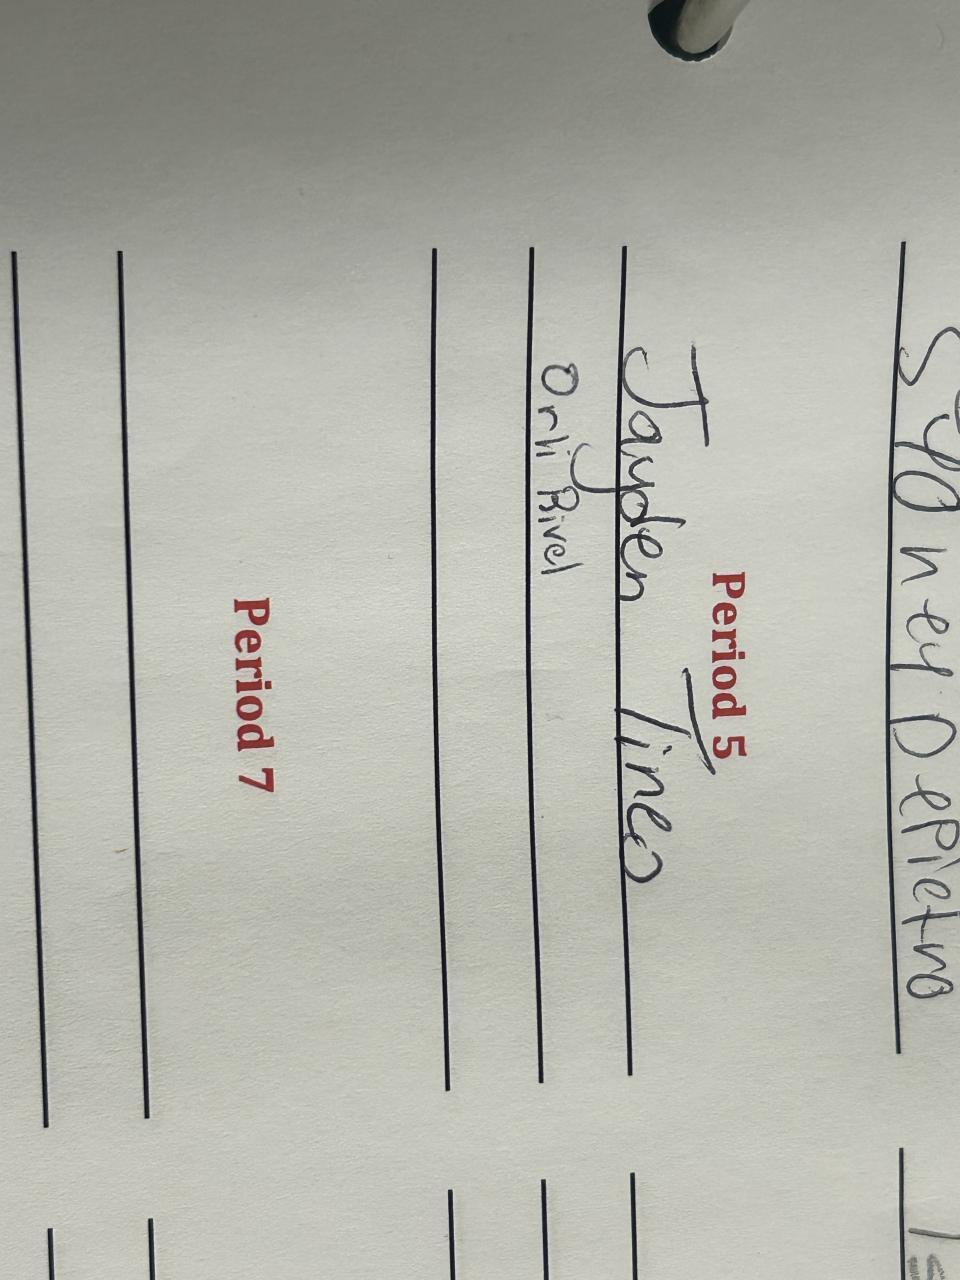 Sydney DePietro
Period 5
Jayden Tineo
Orli Bivel
Period 7